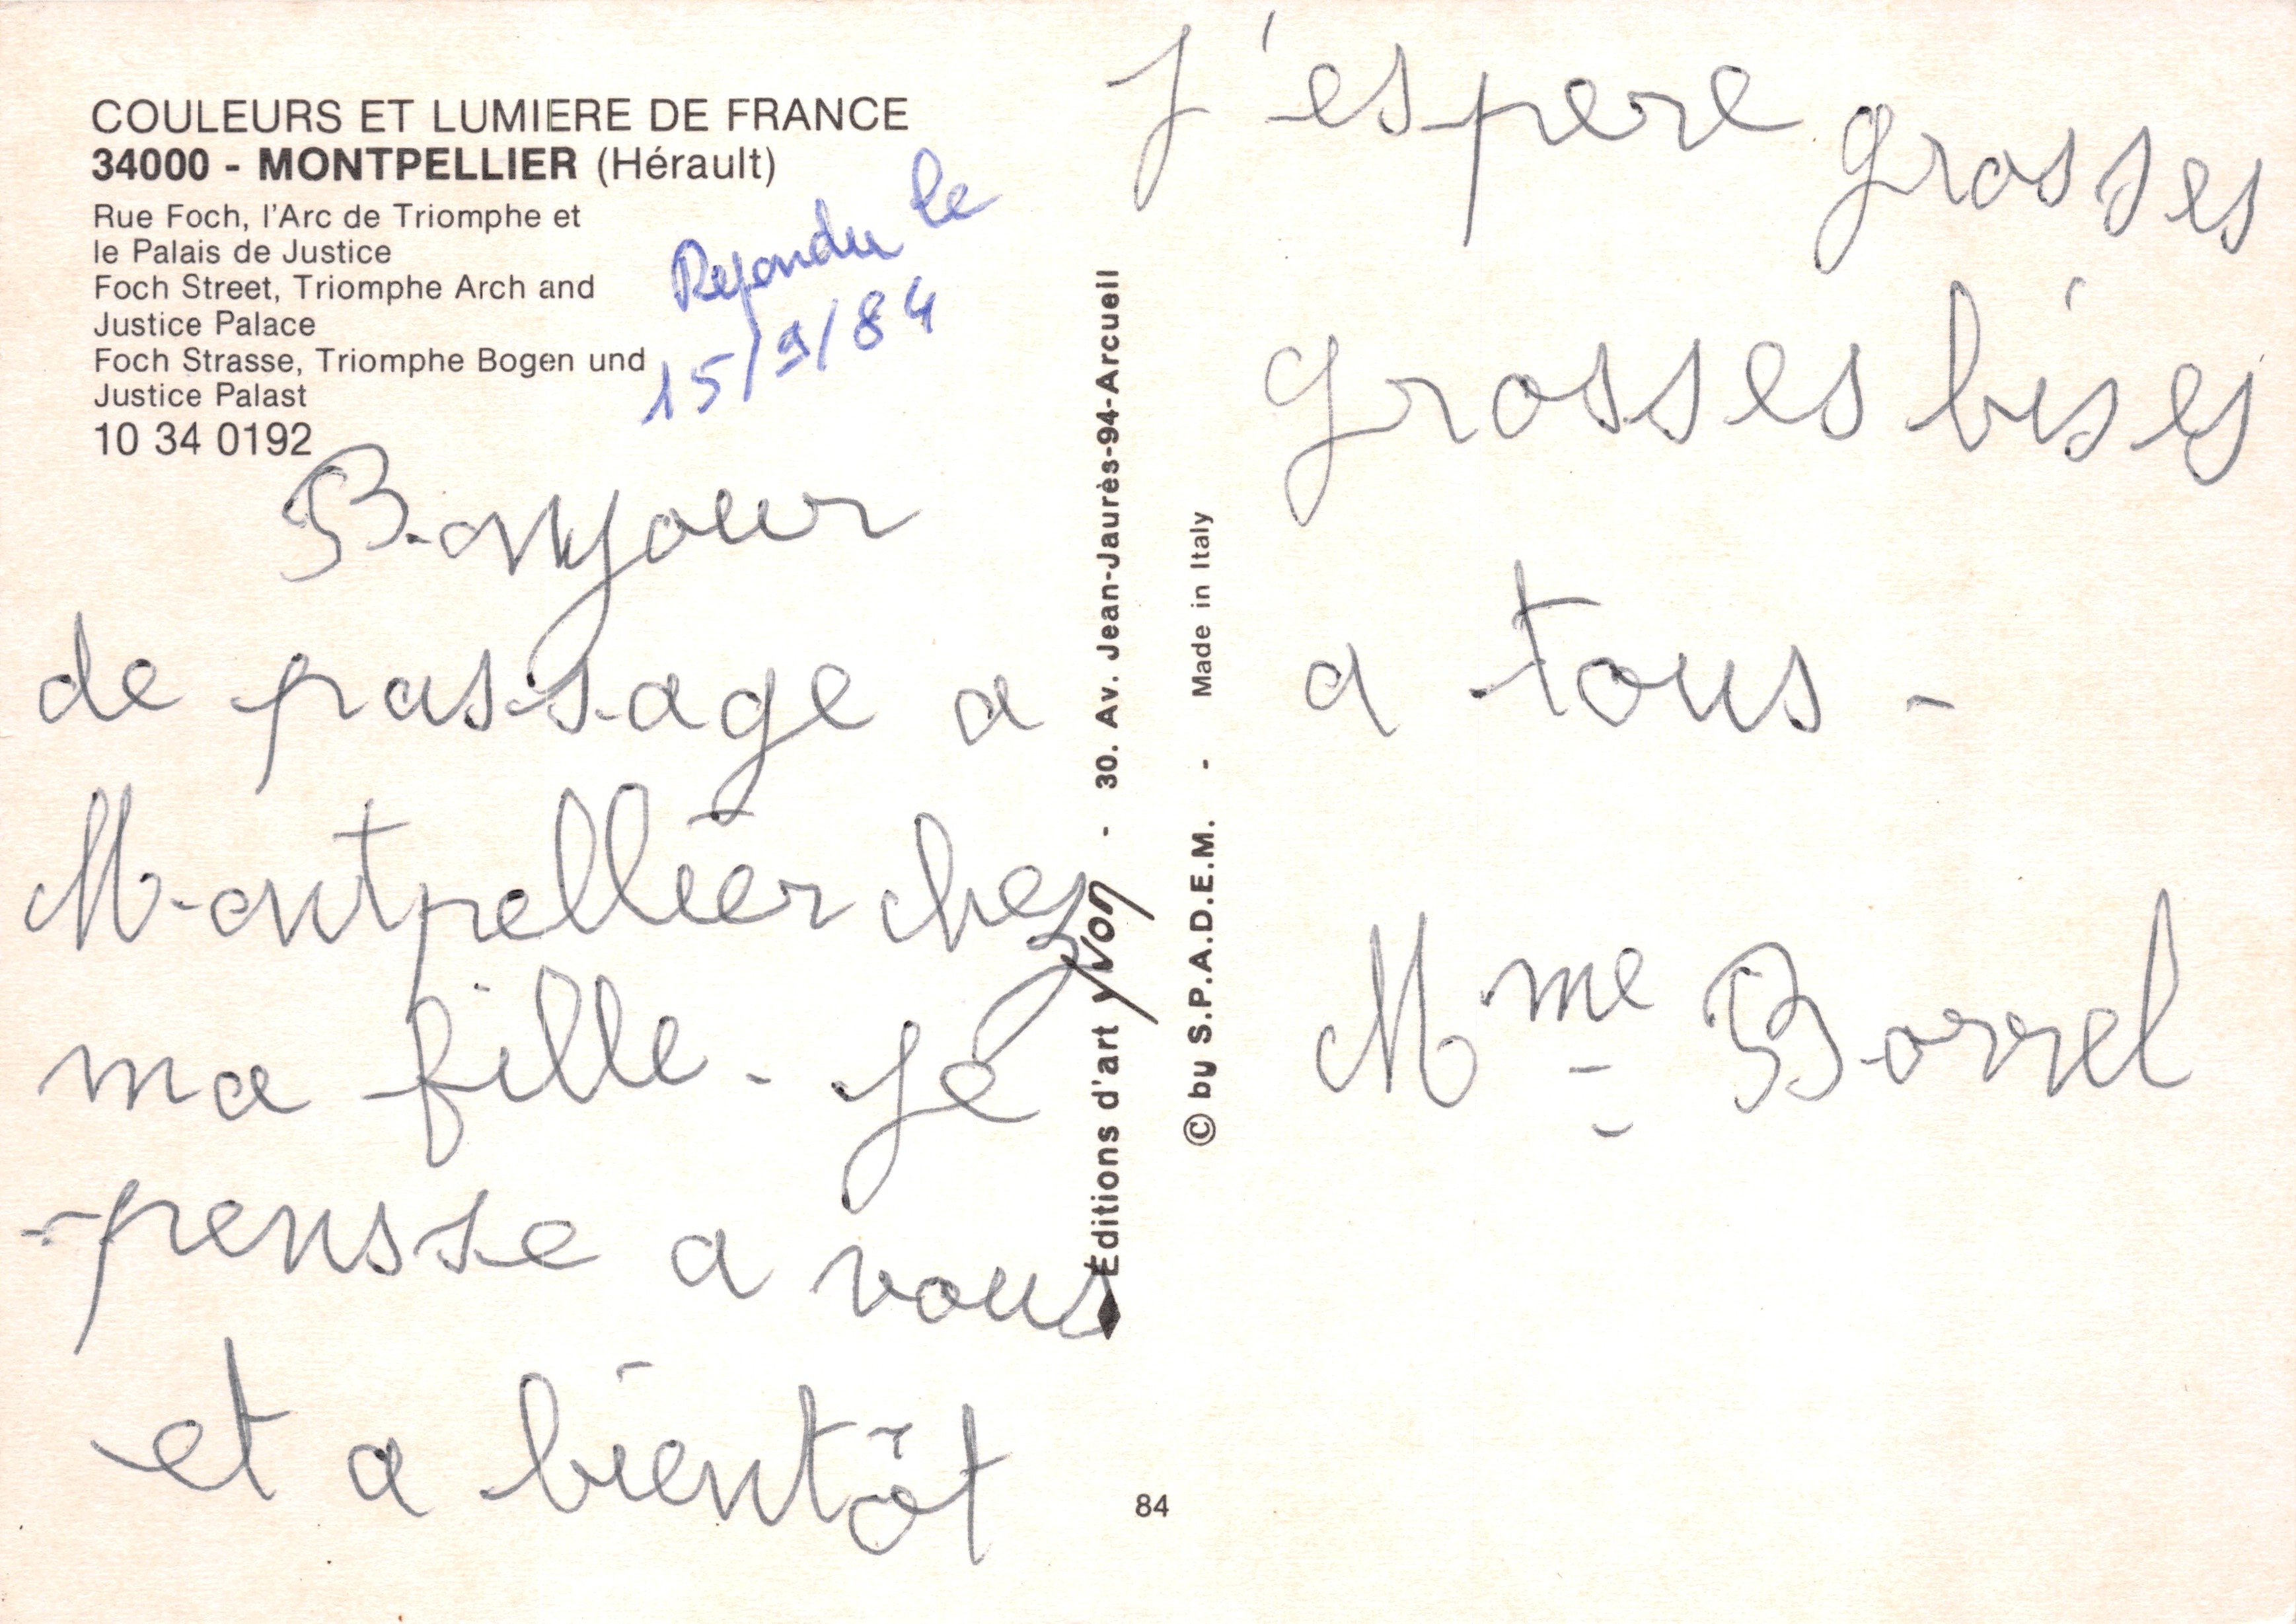 COULEURS ET LUMIERE DE FRANCE
34000 - MONTPELLIER (Hérault)
Rue Foch, l'Arc de Triomphe et
le Palais de Justice
Foch Street, Triomphe Arch and
Justice Palace
Foch Strasse, Triomphe Bogen und
Justice Palast
10 34 0192
Repondu le
15/9/84
Bonjour
de passage a
Montpellier chez
ma fille - Je
pensse a vous
et a bientôt
Editions d'art yvon - 30. Av. Jean-Jaurès-94-Arcueil
© by S.P.A.D.E.M. - Made in Italy
84
J'espere grosses
grosses bises
a tous -
Mme Borrel